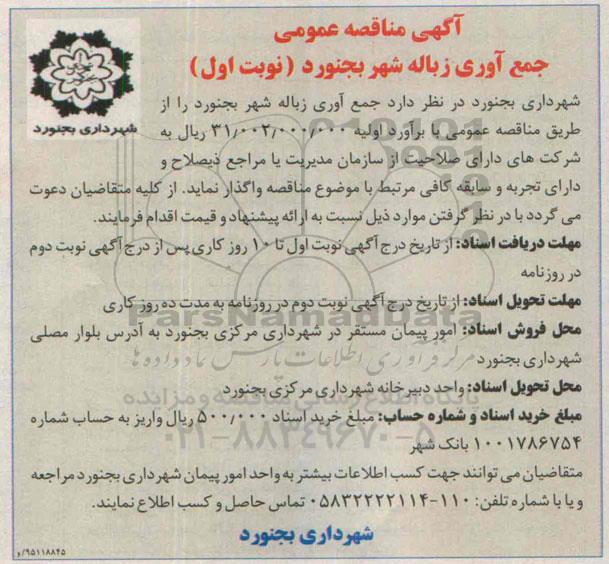 آگهی مناقصه عمومی
جمع آوری زباله شهر بجنورد (نوبت اول)
شهرداری بجنورد
شهرداری بجنورد در نظر دارد جمع آوری زباله شهر بجنورد را از
طریق مناقصه عمومی با برآورد اولیه ۳۱/۰۰۲/۰۰۰/۰۰۰ ریال به
شرکت های دارای صلاحیت از سازمان مدیریت یا مراجع ذیصلاح و
دارای تجربه و سابقه کافی مرتبط با موضوع مناقصه واگذار نماید. از کلیه متقاضیان دعوت
می گردد با در نظر گرفتن موارد ذیل نسبت به ارائه پیشنهاد و قیمت اقدام فرمایند.
مهلت دریافت اسناد: از تاریخ درج آگهی نوبت اول تا ۱۰ روز کاری پس از درج آگهی نوبت دوم
در روزنامه
مهلت تحویل اسناد: از تاریخ درج آگهی نوبت دوم در روزنامه به مدت ده روز کاری
ParsNamadData
محل فروش اسناد: امور پیمان مستقر در شهرداری مرکزی بجنورد به آدرس بلوار مصلی
شهرداری بجنورد
مرکز فرآوری اطلاعات پارس نماد داده ها
محل تحویل اسناد: واحد دبیرخانه شهرداری مرکزی بجنورد
پایگاه اطلاع رسانی مناقصه و مزایده
مبلغ خرید اسناد و شماره حساب: مبلغ خرید اسناد ۵۰۰/۰۰۰ ریال واریز به حساب شماره
۱۰۰۱۷۸۶۷۵۴ بانک شهر
۰۲۱-۸۸۳۴۹۶۷۰-۵
متقاضیان می توانند جهت کسب اطلاعات بیشتر به واحد امور پیمان شهرداری بجنورد مراجعه
و یا با شماره تلفن: ۱۱۰-۰۵۸۳۲۲۲۲۱۱۴ تماس حاصل و کسب اطلاع نمایند.
شهرداری بجنورد
۹۵۱۱۸۸۴۵/و